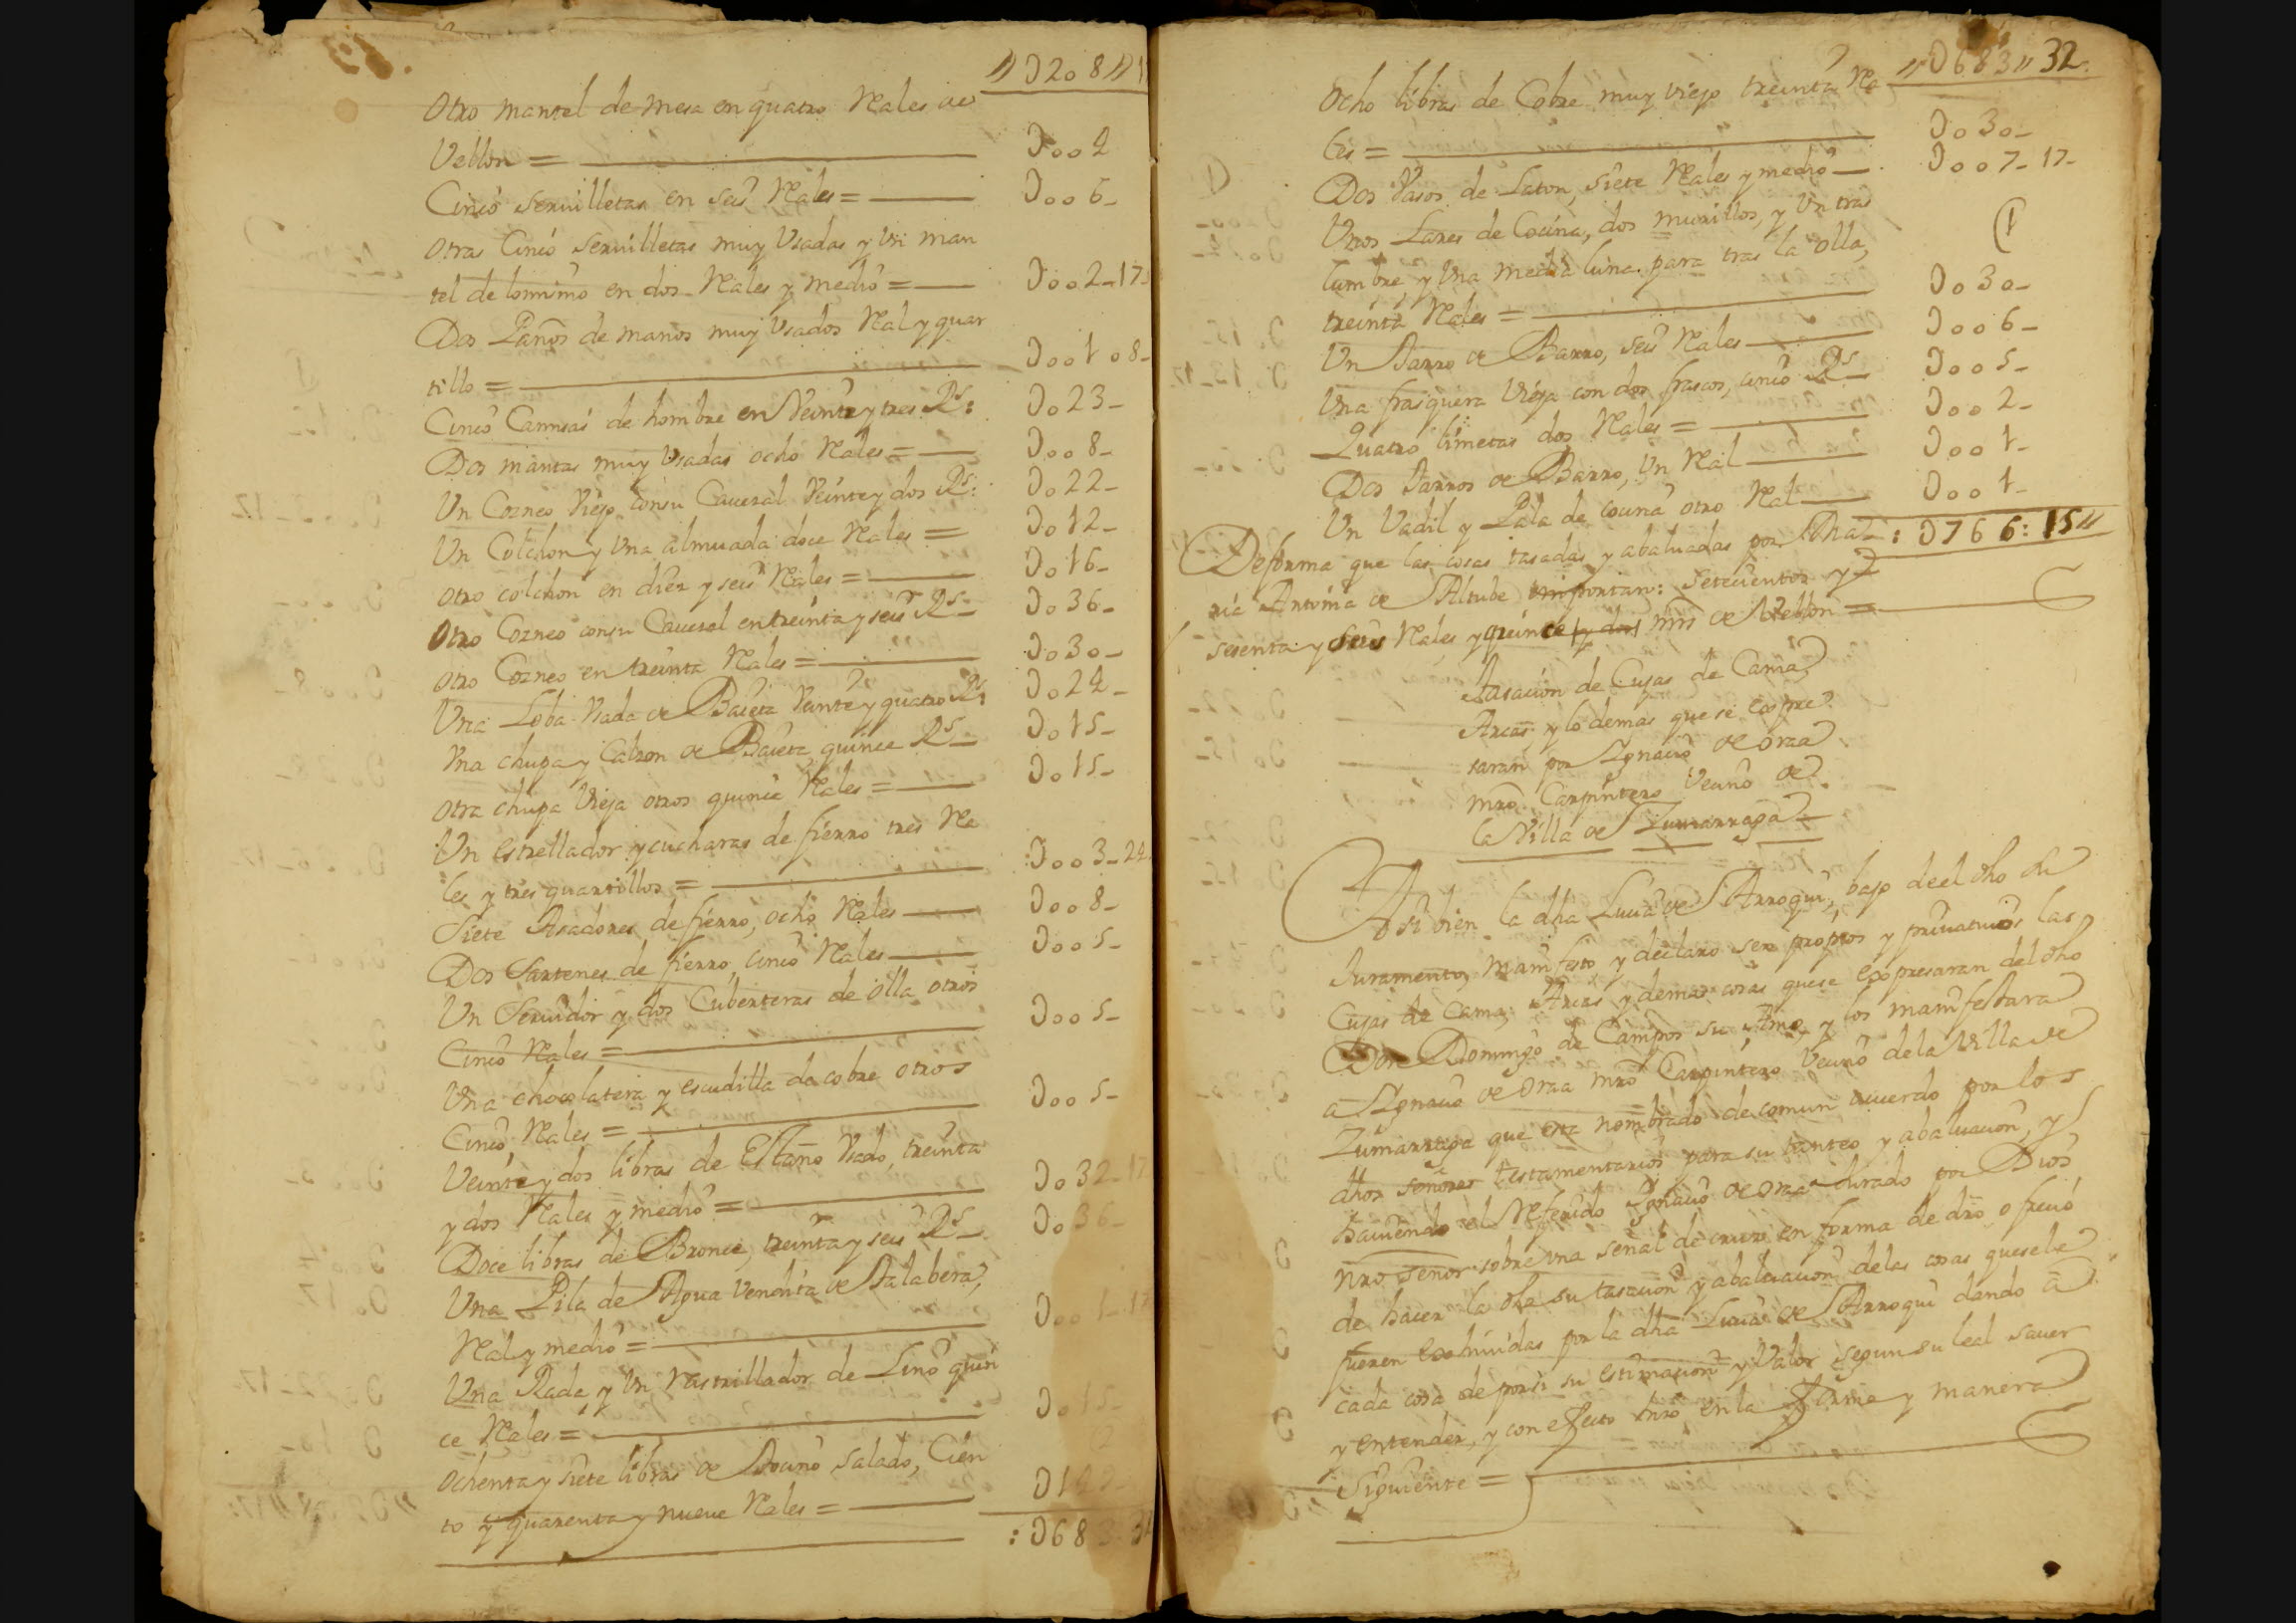 "D208"1
Otro mantel de mesa en quatro Rales de
Vellon = D004
Cinco servilletas en seis Rales = D006-
Otras Cinco servilletas muy Vsadas y Vn man
tel de lo mismo en dos Rales y medio = D002-17
Dos Paños de manos muy Vsados Ral y quar
tillo = D001 08-
Cinco Camisas de hombre en Veinte y tres Rs: D023-
Dos mantas muy Vsadas ocho Rales = D008-
Un Cozneo Viejo consu Caveral Veinte y dos Rs: D022-
Un Colchon y Vna almuada doce Rales = D012-
Otro colchon en diez y seis Rales = D016-
Otro Cozneo consu Caveral en treinta y seis Rs- D036-
Otro Cozneo en treinta Rales = D030-
Una Loba Vsada de Baieta Veinte y quatro Rs: D024-
Vna chupa y Calzon de Baieta quince Rs- D015-
Otra chupa Vieja otros quince Rales = D015-
Un estrellador y cucharas de fierro tres Ra
les y tres quartillos = :D003-24
Siete Asadores de fierro, ocho Rales D008-
Dos Sartenes de fierro, cinco Rales D005-
Un Servidor y dos Cuberteras de olla otros
Cinco Rales = D005-
Vna chocolatera y escudilla de cobre otros
Cinco Rales = D005-
Veinte y dos libras de Estaño Vsado, treinta
y dos Rales y medio = D032-17
Doce libras de Bronce, treinta y seis Rs- D036-
Una Pila de Agua Vendita de Talabera,
Ral y medio = D001-17
Una Rada, y Vn rastrillador de Lino quin
ce Rales = D015-
Ochenta y siete libras de tocino salado, Cien
to y quarenta y nueve Rales = D149-
:D683-32
"D683"32.
Ocho libras de Cobre muy viejo treinta Ra
les = D030-
Dos Vasos de Laton, siete Rales y medio D007-17-
Unos Lares de Cocina, dos murillos, y Vn tras
lumbre, y Vna media luna para tras la olla,
treinta Rales = D030-
Un Jarro de Barro, seis Rales D006-
Una frasquera Vieja con dos frascos, cinco Rs- D005-
Quatro limetas dos Rales = D002-
Dos Jarros de Barro, Vn Ral D001-
Un Vadil y Pala de cocina otro Ral D001-
:D766:15"
Deforma que las cosas tasadas y abaluadas por Dha Ma
ria Antonia de Altube importan: setecientos y
sesenta y seis Rales y quince y dos mrs de Vellon =
Tasacion de Cujas de Cama
Arcas, y lo demas que se Expre
saran por Ignacio de Oraa
mro Carpintero Vecino de
la Villa de Zumarraga
Asi bien la dha Lucia de Arroqui, bajo de el dho Ju
Juramento, manifesto, y declaro ser propios y privativos las
Cujas de Cama, Arcas y demas cosas que se expresaran del dho
Don Domingo de Campos su Amo, y los manifestara
a Ignacio de Oraa mro Carpintero Vecino dela Villa de
Zumarraga que esta nombrado de comun acuerdo por los
dhos señores testamentarios para su tanteo y abaluacion, y
haviendo el Referido Ignacio de Oraa Jurado por Dios
nro señor sobre Vna señal de cruz en forma de dro ofrecio
de hacer la dha su tasacion y abaluacion delas cosas que sele
fueren exhividas por la dha Lucia de Arroqui dando a
cada cosa de porsi su estimacion y Valor segun su leal saver
y entender, y con efecto hizo en la forma y manera
Siguiente =